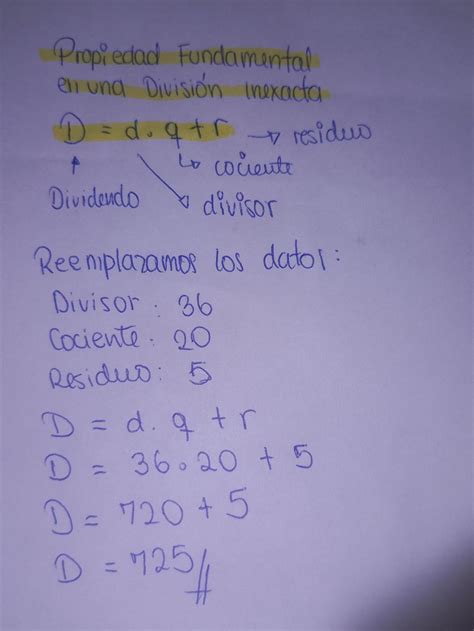 Propiedad Fundamental
en una División Inexacta
D = d . q + r → residuo
cociente
Dividendo
divisor
Reemplazamos los datos:
Divisor : 36
Cociente: 20
Residuo: 5
D = d . q + r
D = 36 . 20 + 5
D = 720 + 5
D = 725//